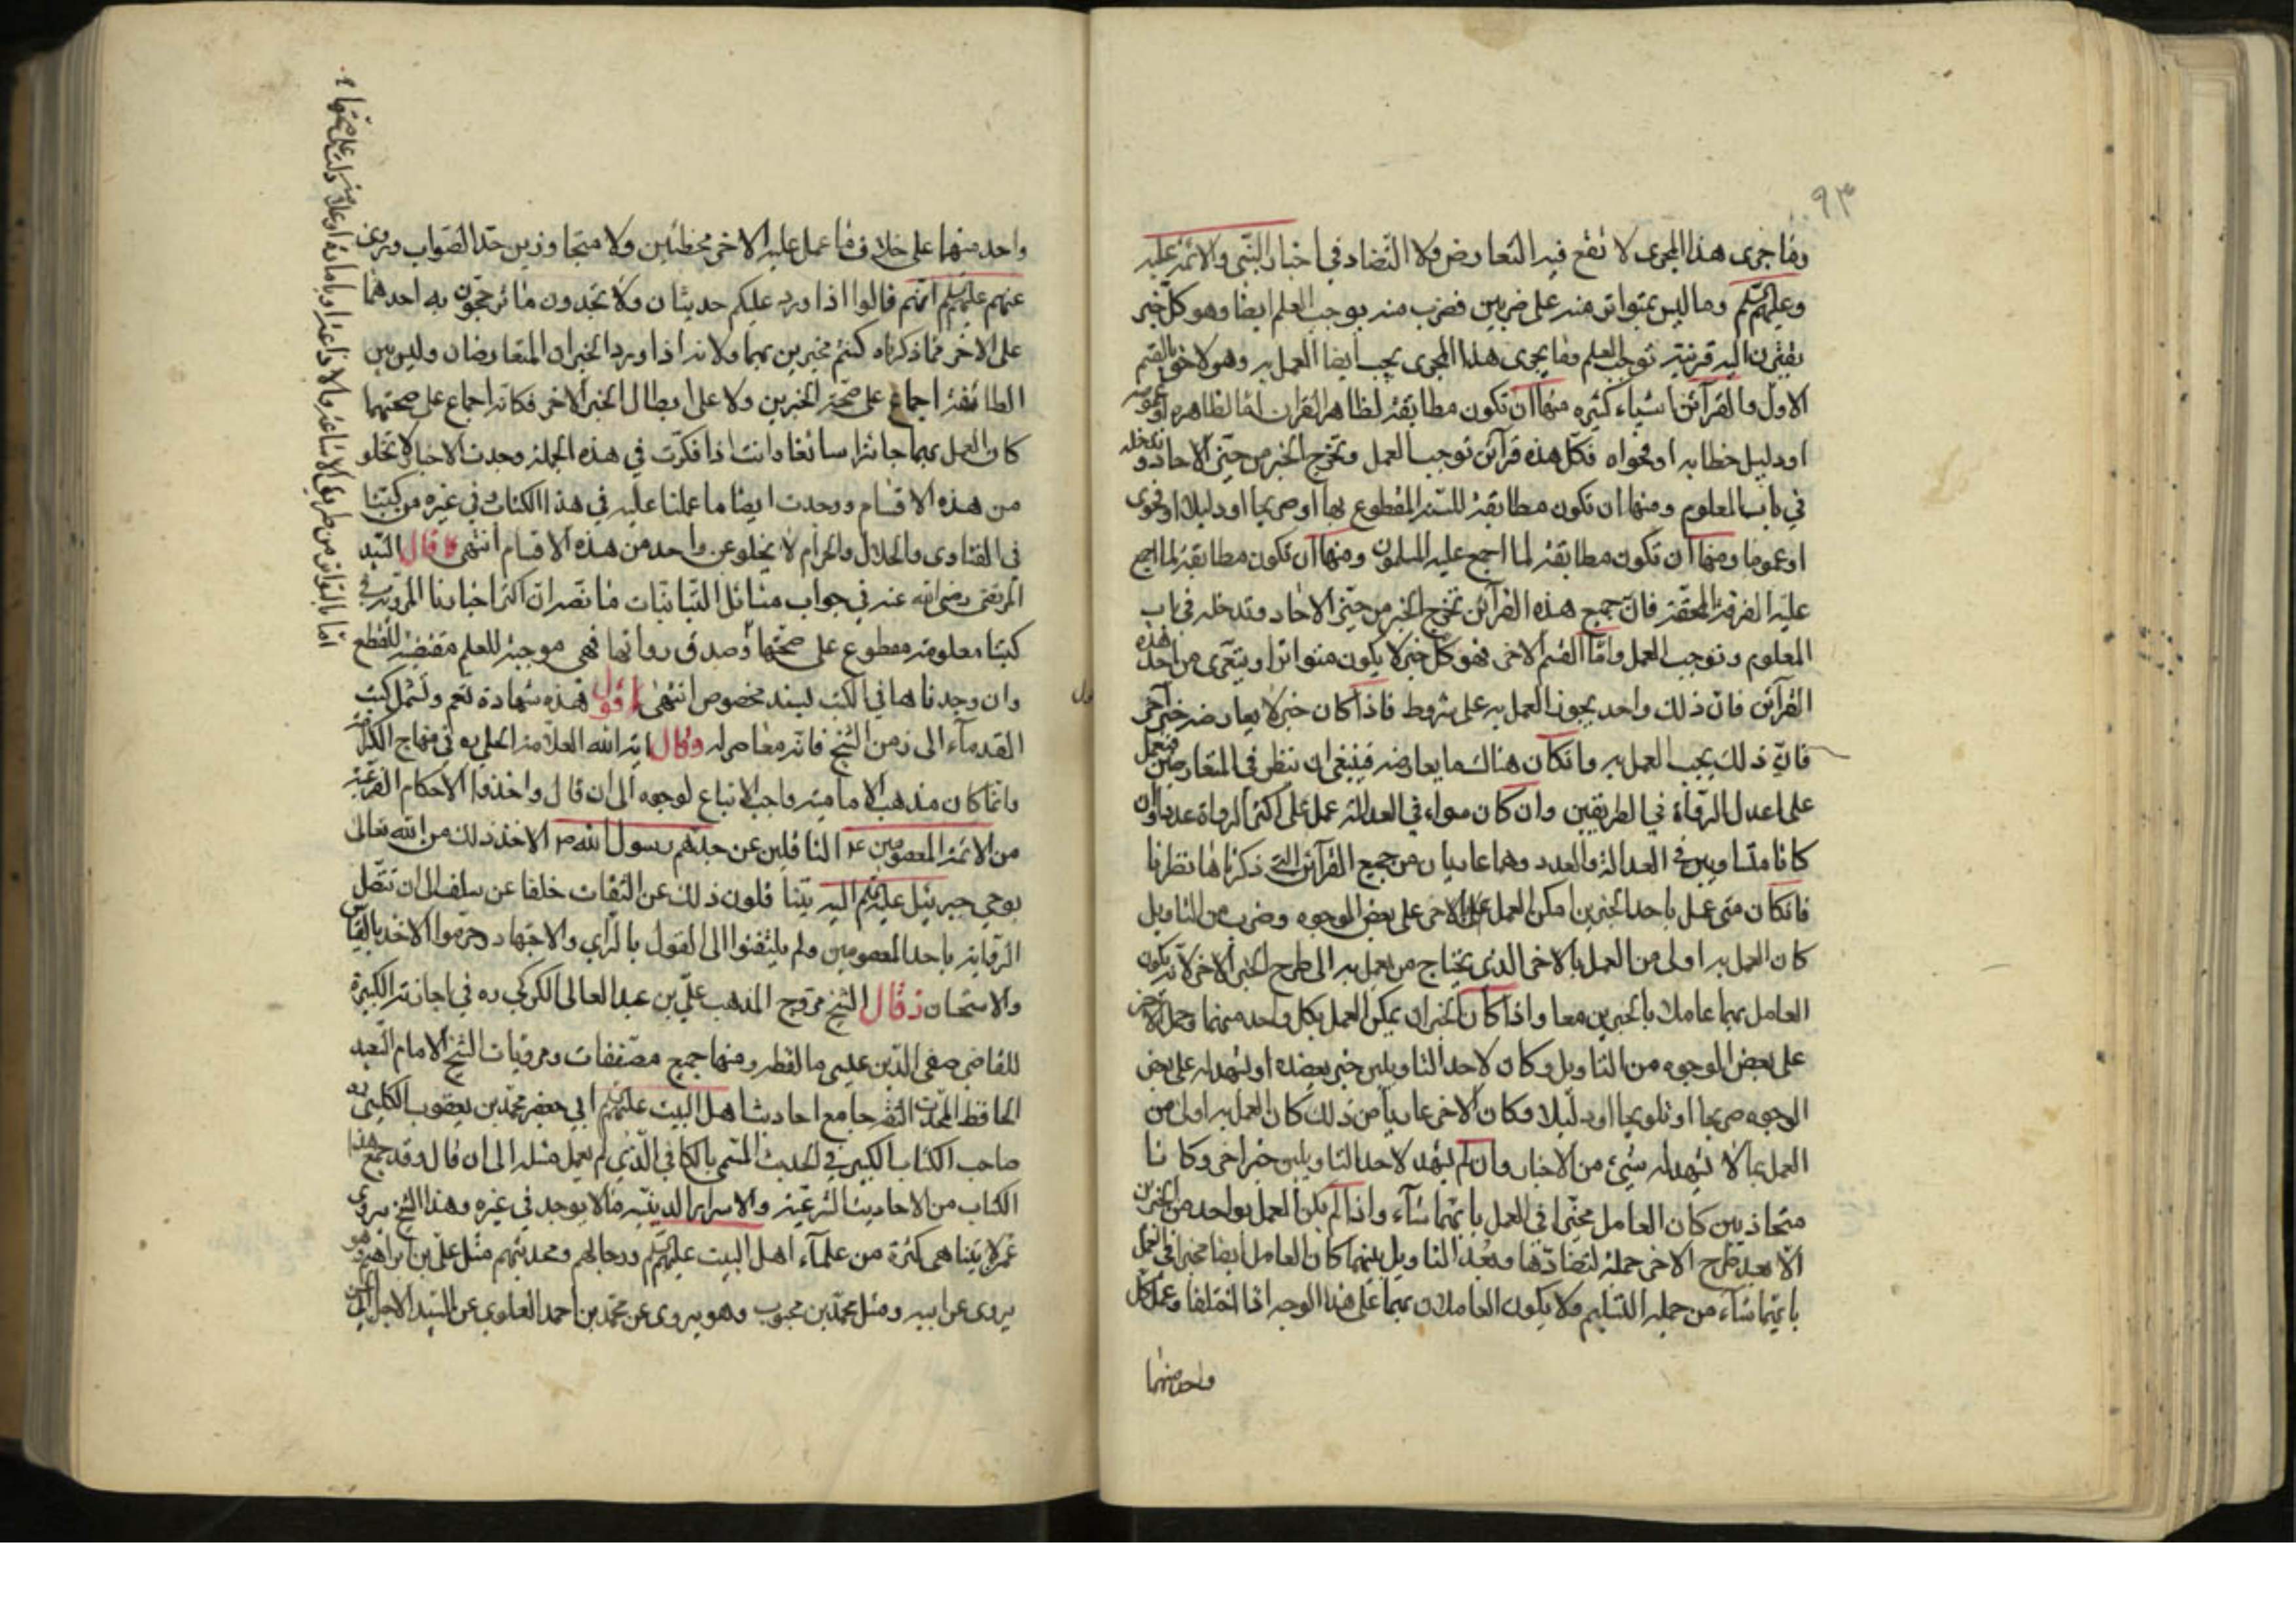 ٩٣
وما جرى هذا المجرى لا يقع فيه التعارض ولا التضاد في اخبار النبي والائمة عليه
وعليهم السلم وما ليس بمتواتر منه على ضربين فضرب منه يوجب العلم ايضا وهو كل خبر
يقترن اليه قرينة توجب العلم وما يجرى هذا المجرى يجب ايضا العمل به وهو لاحق بالقسم
الاول والقرآئن اشياء كثيره منها ان تكون مطابقة لظاهر القران اما لظاهره او عمومه
او دليل خطابه او فحواه فكل هذه قرآئن توجب العمل وتخرج الخبر من حيّز الآحاد وتدخله
في باب المعلوم ومنها ان تكون مطابقة للسنة المقطوع بها او صريحا او دليلا او فحوى
او عموما ومنها ان تكون مطابقة لما اجمع عليه المسلمون ومنها ان تكون مطابقة لما اجمع
عليه الفرقة المحقة فان جميع هذه القرآئن تخرج الخبر من حيّز الآحاد وتدخله في باب
المعلوم وتوجب العمل وامّا القسم الاخر فهو كل خبر لا يكون متواترا ويتعرى من احد هذه
القرآئن فان ذلك واحد يجوز العمل به على شروط فاذا كان خبر لا يعارضه خبر آخر
فانّ ذلك يجب العمل به وان كان هناك ما يعارضه فينبغي ان ينظر في المتعارضين فيعمل
على اعدل الرواة في الطريقين وان كان سواء في العدالة عمل على اكثر الرواة عددا وان
كانا متساويين في العدالة والعدد وهما عاريان من جميع القرآئن التي ذكرناها نظرنا
فان كان متى عمل باحد الخبرين امكن العمل على الاخر على بعض الوجوه وضرب من التاويل
كان العمل به اولى من العمل بالاخر الذي يحتاج من يعمل به الى طرح الخبر الاخر لانه يكون
العامل بهما عاملا بالخبرين معا واذا كان الخبران يمكن العمل بكل واحد منهما وحمل الاخر
على بعض الوجوه من التاويل وكان لاحد التاويلين خبر يعضده او يشهد له على بعض
الوجوه صريحا او تلويحا او دليلا وكان الاخر عاريا من ذلك كان العمل به اولى من
العمل بما لا يشهد له شيء من الاخبار وان لم يشهد لاحد التاويلين خبر اخر وكانا
متحاذيين كان العامل مخيّرا في العمل بايهما شآء واذا لم يكن العمل بواحد من الخبرين
الا بعد طرح الاخر جملة لتضادهما وبعد التاويل بينهما كان العامل ايضا مخيرا في العمل
بايهما شآء من جهة التسليم ولا يكون العاملان بهما على هذا الوجه اذا اختلفا وعمل كل
واحد منهما
واحد منهما على خلاف ما عمل عليه الاخر مخطئين ولا متجاوزين حد الصواب وروى
عنهم عليهم السلم انهم قالوا اذا ورد عليكم حديثان ولا تجدون ما ترجحون به احدهما
على الاخر مما ذكرناه كنتم مخيرين بهما ولانه اذا ورد الخبران المتعارضان وليس بين
الطائفة اجماع على صحة الخبرين ولا على ابطال الخبر الاخر فكانه اجماع على صحتهما
كان العمل بهما جائزا سائغا وانت اذا فكرت في هذه الجملة وجدت الاخبار لا تخلو
من هذه الاقسام ووجدت ايضا ما عملنا عليه في هذا الكتاب وفي غيره من كتبنا
في الفتاوى والحلال والحرام لا يخلو عن واحد من هذه الاقسام انتهى وقال السيد
المرتضى رضى الله عنه في جواب مسائل التبانيات ما نصه ان اكثر اخبارنا المروية في
كتبنا معلومة مقطوع على صحتها وصدق رواتها فهي موجبة للعلم مقتضية للقطع
وان وجدناها في الكتب بسند مخصوص انتهى اقول هذه شهادة تعم وتشمل كتب
القدمآء الى زمن الشيخ فانه معاصر له وقال آية الله العلامة الحلي ره في منهاج الكرامة
وانما كان مذهب الامامية واجب الاتباع لوجوه الى ان قال واخذوا الاحكام الفرعية
من الائمة المعصومين ع الناقلين عن جدهم رسول الله ص الاخذ ذلك من الله تعالى
بوحي جبرئيل عليهم السلم اليه يتناقلون ذلك عن الثقات خلفا عن سلف الى ان تتصل
الرواية باحد المعصومين ولم يلتفتوا الى القول بالرأي والاجتهاد وحرموا الاخذ بالقياس
والاستحسان وقال الشيخ مروج المذهب عليّ بن عبد العالى الكركي ره في اجازته الكبيرة
للقاضي صفي الدين عيسى ما لفظه ومنها جميع مصنفات ومرويات الشيخ الامام السعيد
الحافظ المحدث الثقة جامع احاديث اهل البيت عليهم السلم ابي جعفر محمد بن يعقوب الكليني ره
صاحب الكتاب الكبير في الحديث المسمى بالكافي الذي لم يعمل مثله الى ان قال وقد جمع هذا
الكتاب من الاحاديث الشرعية والاسرار الدينية ما لا يوجد في غيره وهذا الشيخ يروى
عمن لا يتناهى كثرة من علمآء اهل البيت عليهم السلم ورجالهم ومحدثيهم مثل علي بن ابراهيم وهو
يروى عن ابيه ومثل محمد بن محبوب وهو يروى عن محمد بن احمد العلوي عن السيد الاجل
اما بالتواتر من طريق الاشاعة والاذاعة او بامارة وعلامة دلت على صحتها